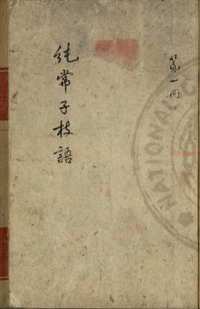 第一冊
純常子枝語
NATIONA